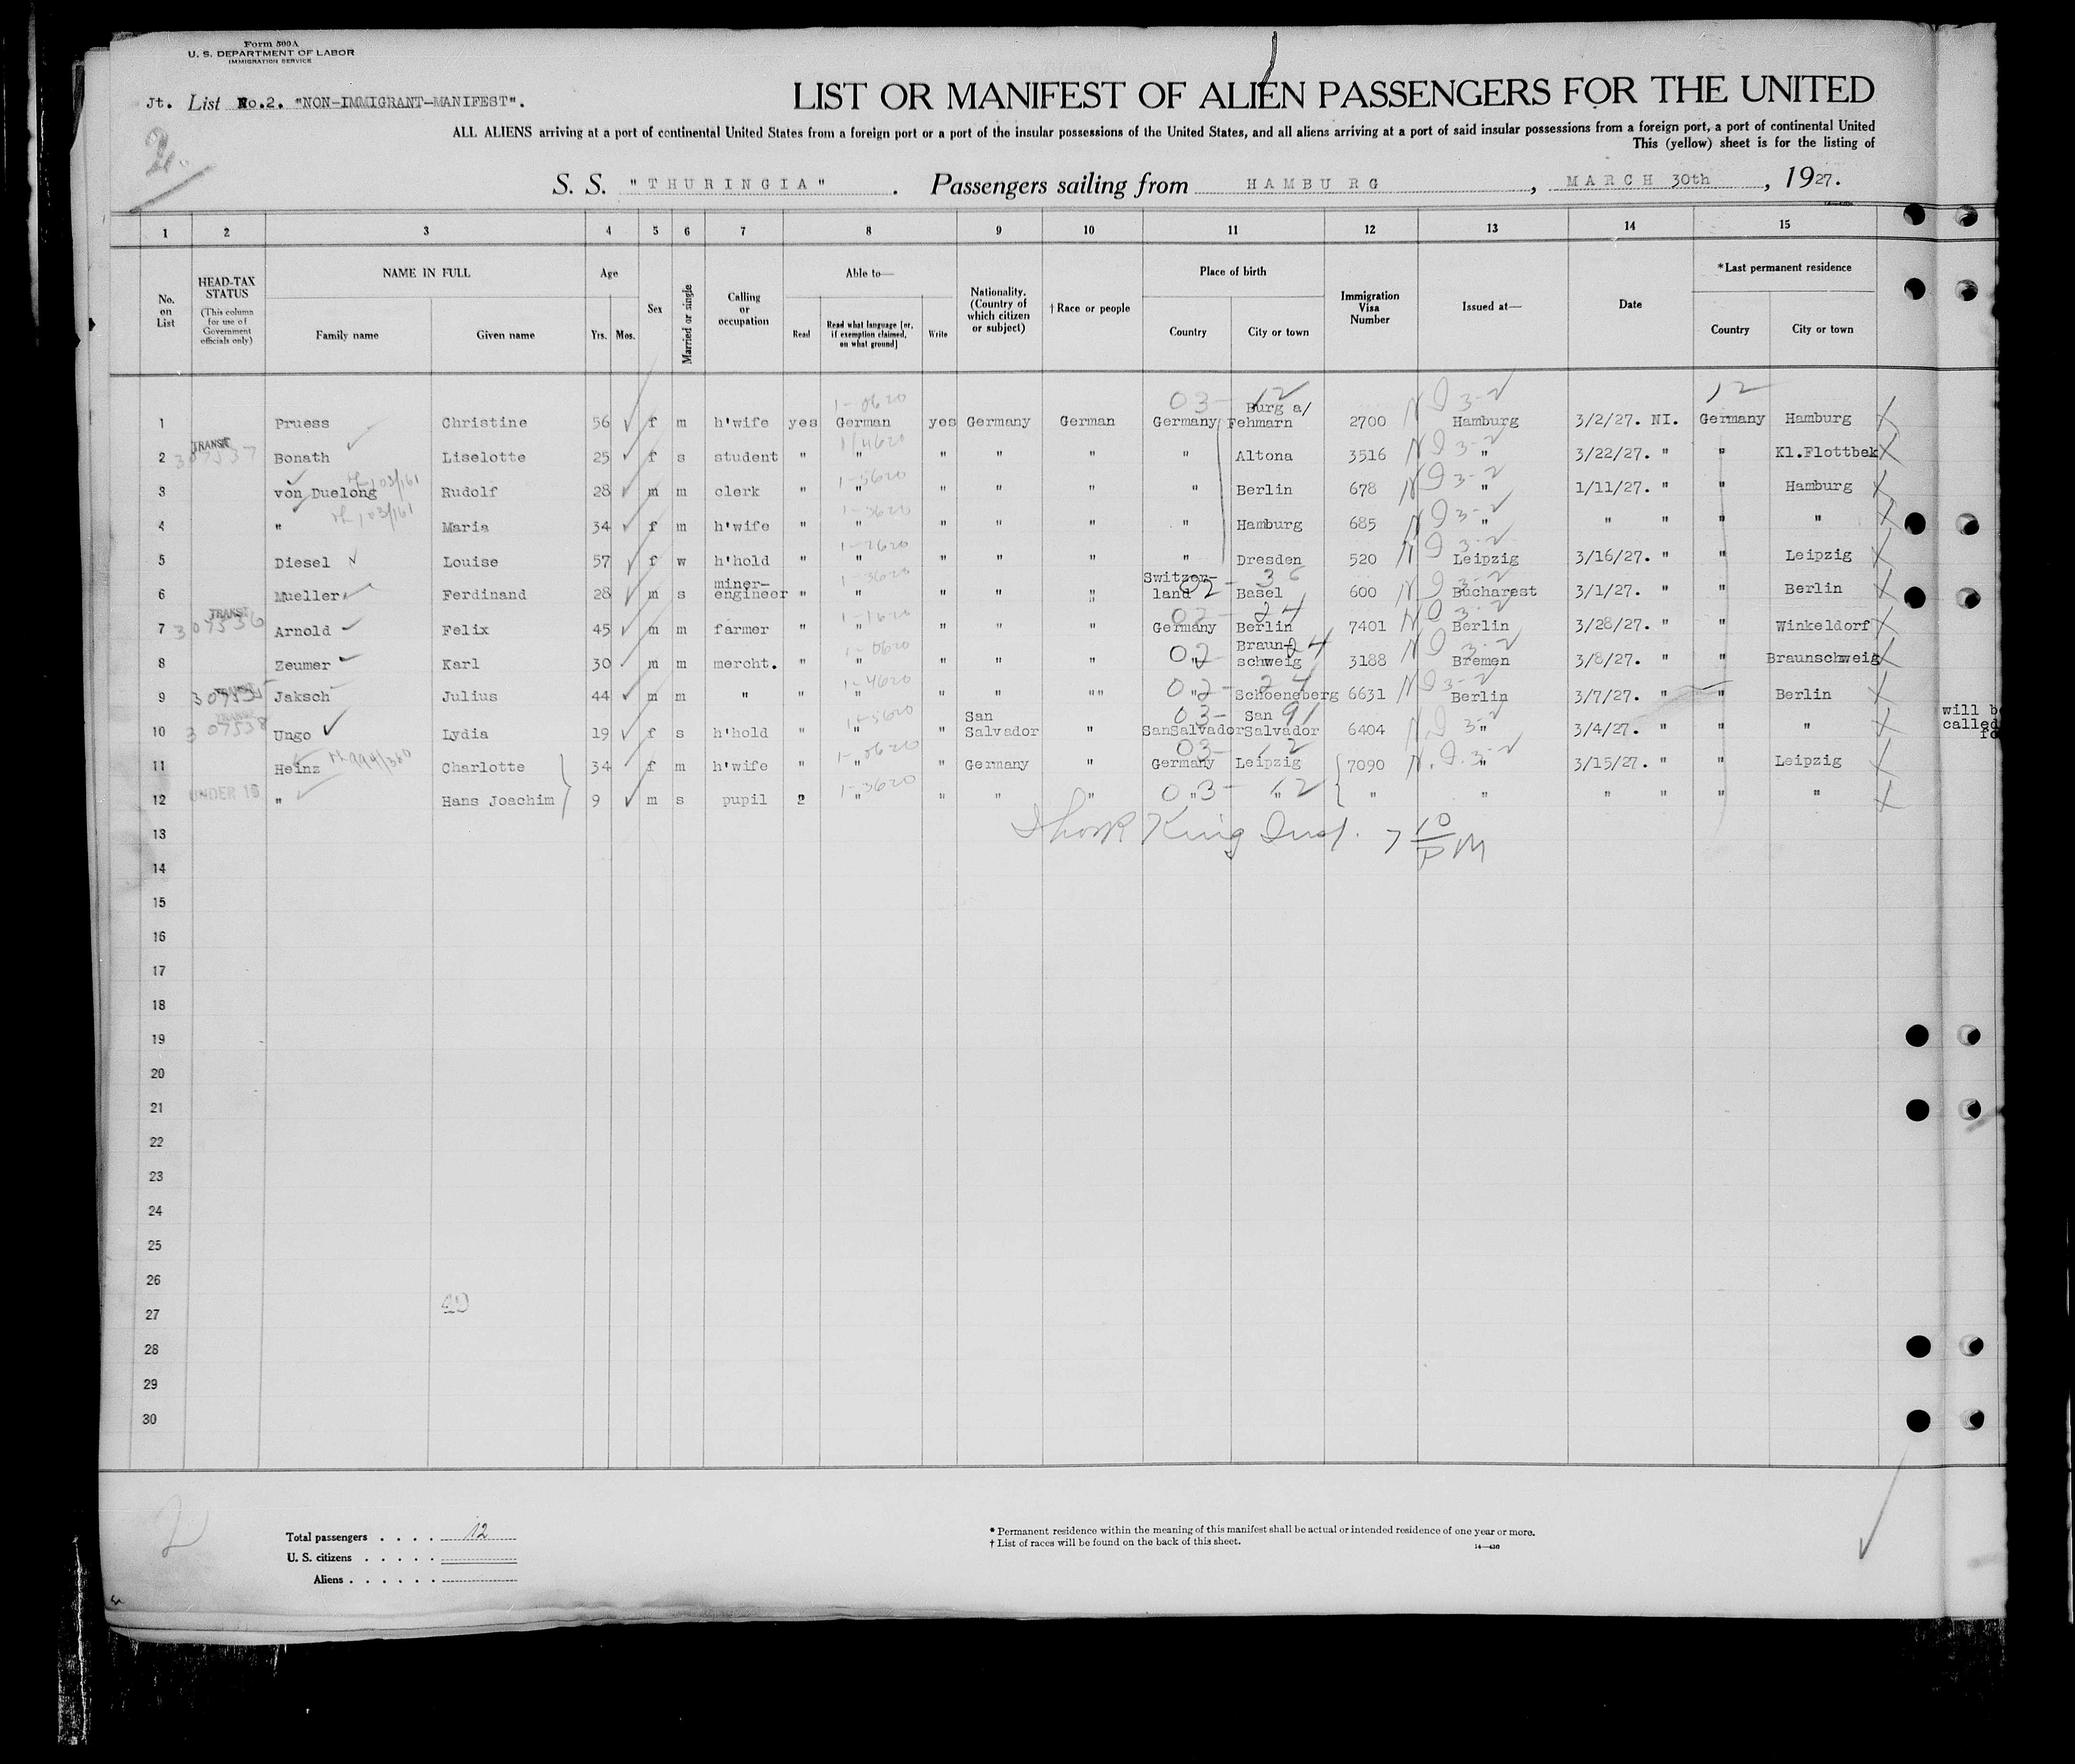 Form 500 A
U. S. DEPARTMENT OF LABOR
IMMIGRATION SERVICE
Jt. List No.2. "NON-IMMIGRANT-MANIFEST".
LIST OR MANIFEST OF ALIEN PASSENGERS FOR THE UNITED
ALL ALIENS arriving at a port of continental United States from a foreign port or a port of the insular possessions of the United States, and all aliens arriving at a port of said insular possessions from a foreign port, a port of continental United
This (yellow) sheet is for the listing of
S. S. "THURINGIA". Passengers sailing from HAMBURG, MARCH 30th, 1927.
1 2 3 4 5 6 7 8 9 10 11 12 13 14 15
No. on List
HEAD-TAX STATUS (This column for use of Government officials only)
NAME IN FULL Family name Given name
Age Yrs. Mos.
Sex
Married or single
Calling or occupation
Able to— Read Read what language [or, if exemption claimed, on what ground] Write
Nationality. (Country of which citizen or subject)
† Race or people
Place of birth Country City or town
Immigration Visa Number
Issued at—
Date
*Last permanent residence Country City or town
1 Pruess Christine 56 f m h'wife yes German yes Germany German Germany Burg a/ Fehmarn 2700 Hamburg 3/2/27. NI. Germany Hamburg
2 TRANSIT 307537 Bonath Liselotte 25 f s student " " " " " " Altona 3516 " 3/22/27. " " Kl.Flottbek
3 von Duelong Rudolf 28 m m clerk " " " " " " Berlin 678 " 1/11/27. " " Hamburg
4 " Maria 34 f m h'wife " " " " " " Hamburg 685 " " " " "
5 Diesel Louise 57 f w h'hold " " " " " " Dresden 520 Leipzig 3/16/27. " " Leipzig
6 Mueller Ferdinand 28 m s miner-engineer " " " " " Switzer-land Basel 600 Bucharest 3/1/27. " " Berlin
7 TRANSIT 307536 Arnold Felix 45 m m farmer " " " " " Germany Berlin 7401 Berlin 3/28/27. " " Winkeldorf
8 Zeumer Karl 30 m m mercht. " " " " " " Braun-schweig 3188 Bremen 3/8/27. " " Braunschweig
9 307535 Jaksch Julius 44 m m " " " " " "" Schoeneberg 6631 Berlin 3/7/27. " " Berlin
10 307538 Ungo Lydia 19 f s h'hold " " " San Salvador " SanSalvador San Salvador 6404 " 3/4/27. " " "
will b
called
fo
11 Heinz Charlotte 34 f m h'wife " " " Germany " Germany Leipzig 7090 " 3/15/27. " " Leipzig
12 UNDER 16 " Hans Joachim 9 m s pupil " " " " " " " " " " " "
13 King Insp. 7 10 PM
14
15
16
17
18
19
20
21
22
23
24
25
26
27
28
29
30
Total passengers . . . . 12
U. S. citizens . . . . .
Aliens . . . . . .
* Permanent residence within the meaning of this manifest shall be actual or intended residence of one year or more.
† List of races will be found on the back of this sheet.
14—430
2